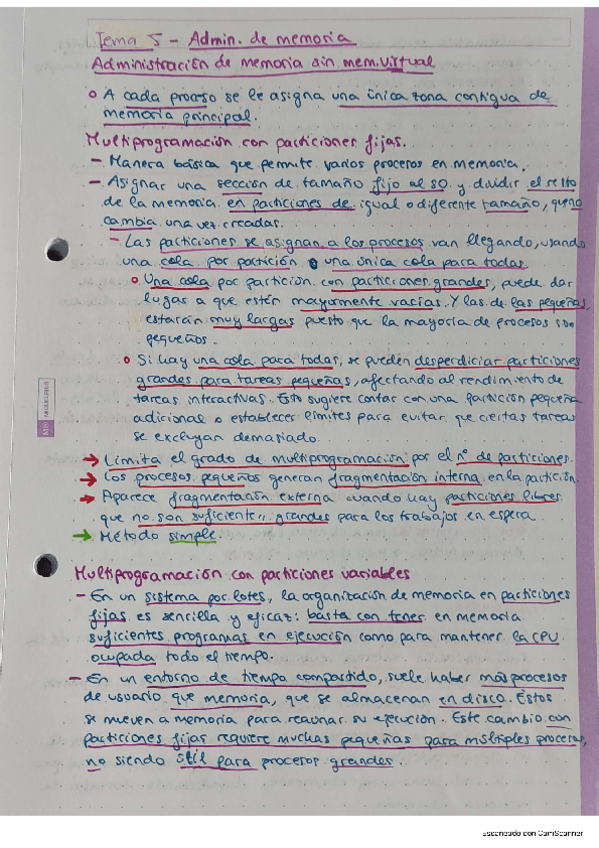 Tema 5 - Admin. de memoria
Administración de memoria sin mem. virtual
o A cada proceso se le asigna una única zona contigua de
memoria principal.
Multiprogramación con particiones fijas.
- Manera básica que permite varios procesos en memoria.
- Asignar una sección de tamaño fijo al SO y dividir el resto
de la memoria en particiones de igual o diferente tamaño, que no
cambia una vez creadas.
- Las particiones se asignan a los procesos van llegando, usando
una cola por partición o una única cola para todas.
o Una cola por partición con particiones grandes, puede dar
lugas a que estén mayormente vacias. Y las de las pequeñas
estarán muy largas puesto que la mayoría de procesos son
pequeños.
o Si hay una cola para todas, se pueden desperdiciar particiones
grandes para tareas pequeñas, afectando al rendimiento de
tareas interactivas. Esto sugiere contar con una partición pequeña
adicional o establecer límites para evitar que ciertas tareas
se excluyan demasiado.
→ Limita el grado de multiprogramación por el nº de particiones.
→ Los procesos pequeños generan fragmentación interna en la partición.
→ Aparece fragmentación externa cuando hay particiones libres
que no son suficiente,, grandes para los trabajos en espera.
→ Método simple.
Multiprogramación con particiones variables
- En un sistema por lotes, la organización de memoria en particiones
fijas es sencilla y eficaz: basta con tener en memoria
suficientes programas en ejecución como para mantener la CPU
ocupada todo el tiempo.
- En un entorno de tiempo compartido, suele haber más procesos
de usuario que memoria, que se almacenan en disco. Estos
se mueven a memoria para reanudar su ejecución. Este cambio con
particiones fijas requiere muchas pequeñas para múltiples procesos,
no siendo útil para procesos grandes.
Escaneado con CamScanner